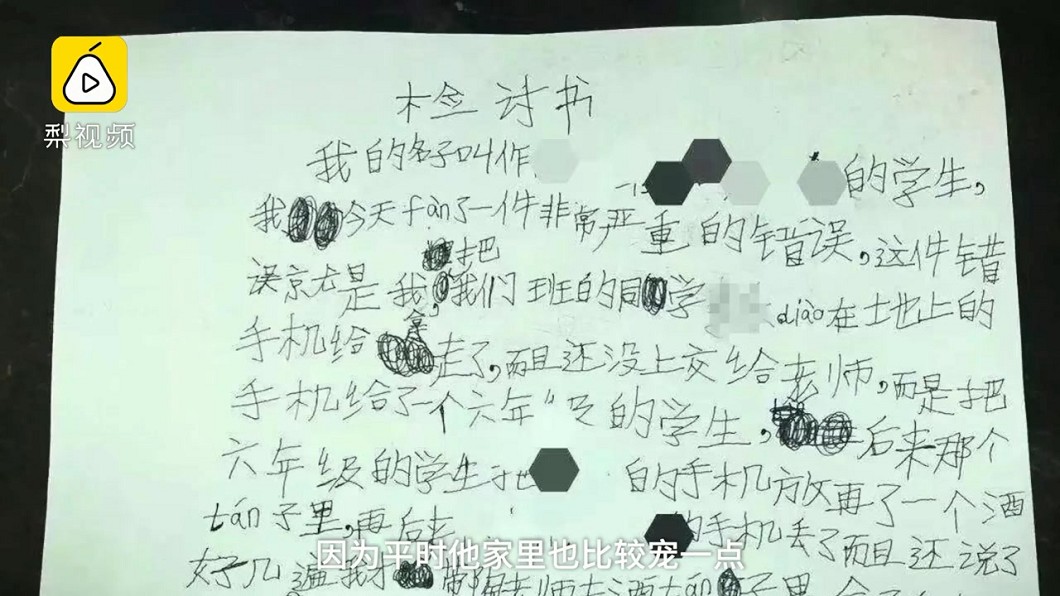 梨视频
检讨书
我的名子叫作
的学生,
我今天fàn了一件非常严重的错误,这件错
把
误京尤是我,我们班的同学diào在土地上的
拿
手机给走了,而且还没上交给老师,而是把
手机给了一个六年"的学生,后来那个
六年级的学生把的手机放再了一个酒
tán子里,再后来的手机丢了而且还说了
好几遍我
因为平时他家里也比较宠一点